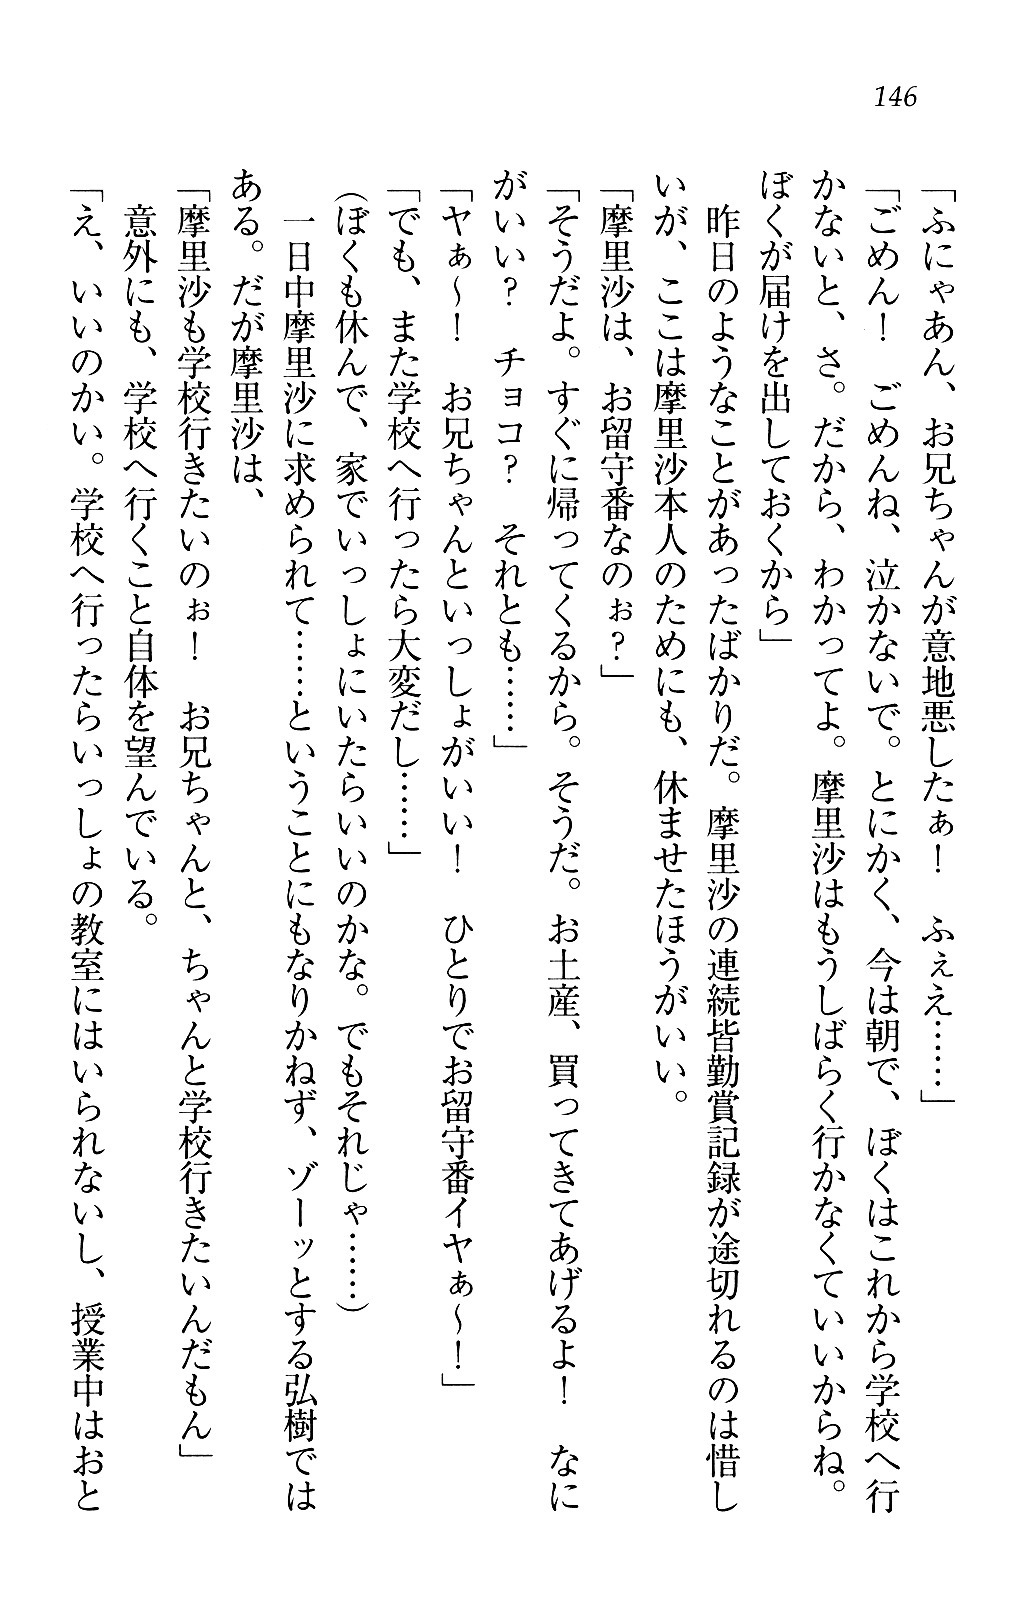 146
「ふにゃあん、お兄ちゃんが意地悪したぁ！　ふぇえ……」
「ごめん！　ごめんね、泣かないで。とにかく、今は朝で、ぼくはこれから学校へ行
かないと、さ。だから、わかってよ。摩里沙はもうしばらく行かなくていいからね。
ぼくが届けを出しておくから」
　昨日のようなことがあったばかりだ。摩里沙の連続皆勤賞記録が途切れるのは惜し
いが、ここは摩里沙本人のためにも、休ませたほうがいい。
「摩里沙は、お留守番なのぉ？」
「そうだよ。すぐに帰ってくるから。そうだ。お土産、買ってきてあげるよ！　なに
がいい？　チョコ？　それとも……」
「ヤぁ～！　お兄ちゃんといっしょがいい！　ひとりでお留守番イヤぁ～！」
「でも、また学校へ行ったら大変だし……」
（ぼくも休んで、家でいっしょにいたらいいのかな。でもそれじゃ……）
　一日中摩里沙に求められて……ということにもなりかねず、ゾーッとする弘樹では
ある。だが摩里沙は、
「摩里沙も学校行きたいのぉ！　お兄ちゃんと、ちゃんと学校行きたいんだもん」
　意外にも、学校へ行くこと自体を望んでいる。
「え、いいのかい。学校へ行ったらいっしょの教室にはいられないし、授業中はおと